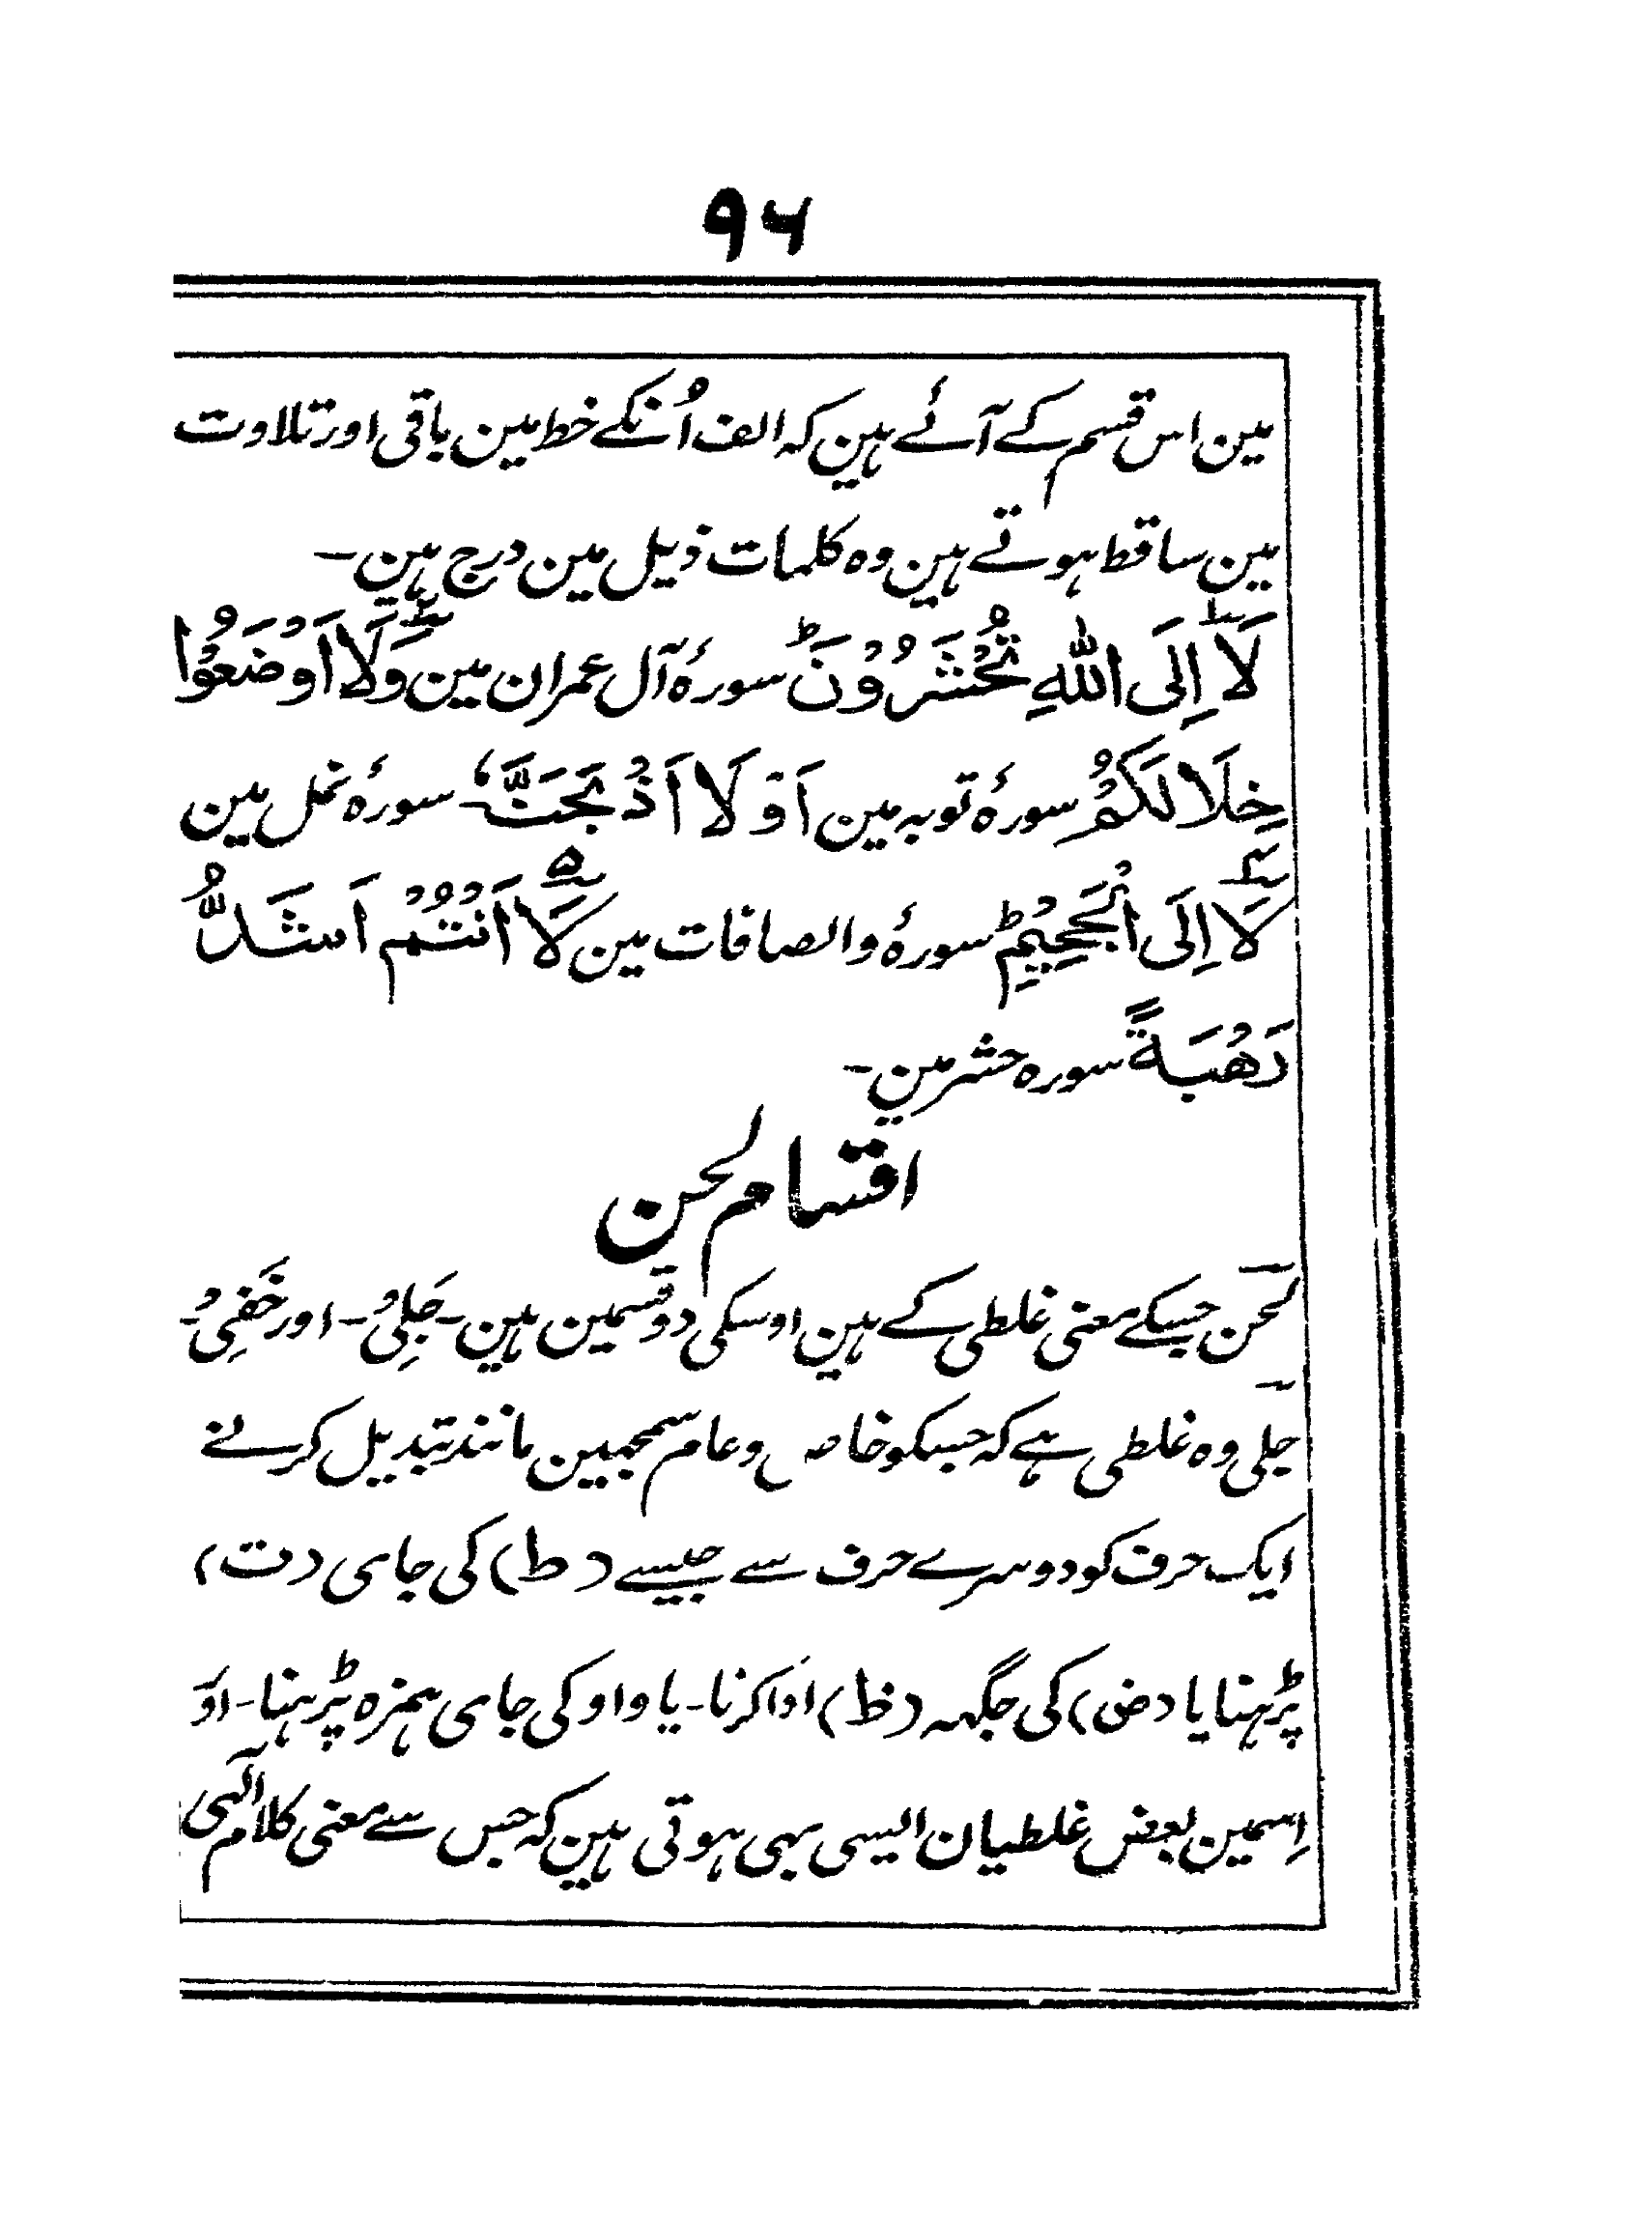 ۹۴
مین اس قسم کے آئے ہین کہ الف اُنکے خط مین باقی اور تلاوت
مین ساقط ہوتے ہین وہ کلمات ذیل مین درج ہین۔
لَاۤ اِلَی اللهِ تُحْشَرُوْنَ ؕ سورۂ آل عمران مین وَلَا۟ اَوْضَعُوْا
خِلَالَكُمْ سورۂ توبہ مین اَوْ لَا۟ اَذْبَحَنَّہٗ سورۂ نمل مین
لَا۟ اِلَی الْجَحِیْمِ ؕ سورۂ والصافات مین لَا۟ اَنْتُمْ اَشَدُّ
رَهْبَةً سورہ حشر مین۔
اقسام لحن
لحن جسکے معنی غلطی کے ہین اوسکی دو قسمین ہین۔ جَلِیْ۔ اور خَفِیْ۔
جلی وہ غلطی ہے کہ جسکو خاص و عام سمجہین مانند تبدیل کرنے
ایک حرف کو دوسرے حرف سے جیسے (ط) کی جای (ت)
پڑہنا یا (ض) کی جگہہ (ظ) ادا کرنا۔ یا واو کی جای ہمزہ پڑہنا۔ اوَ
اِسمین بعض غلطیان ایسی بہی ہوتی ہین کہ جس سے معنی کلام الٰہی